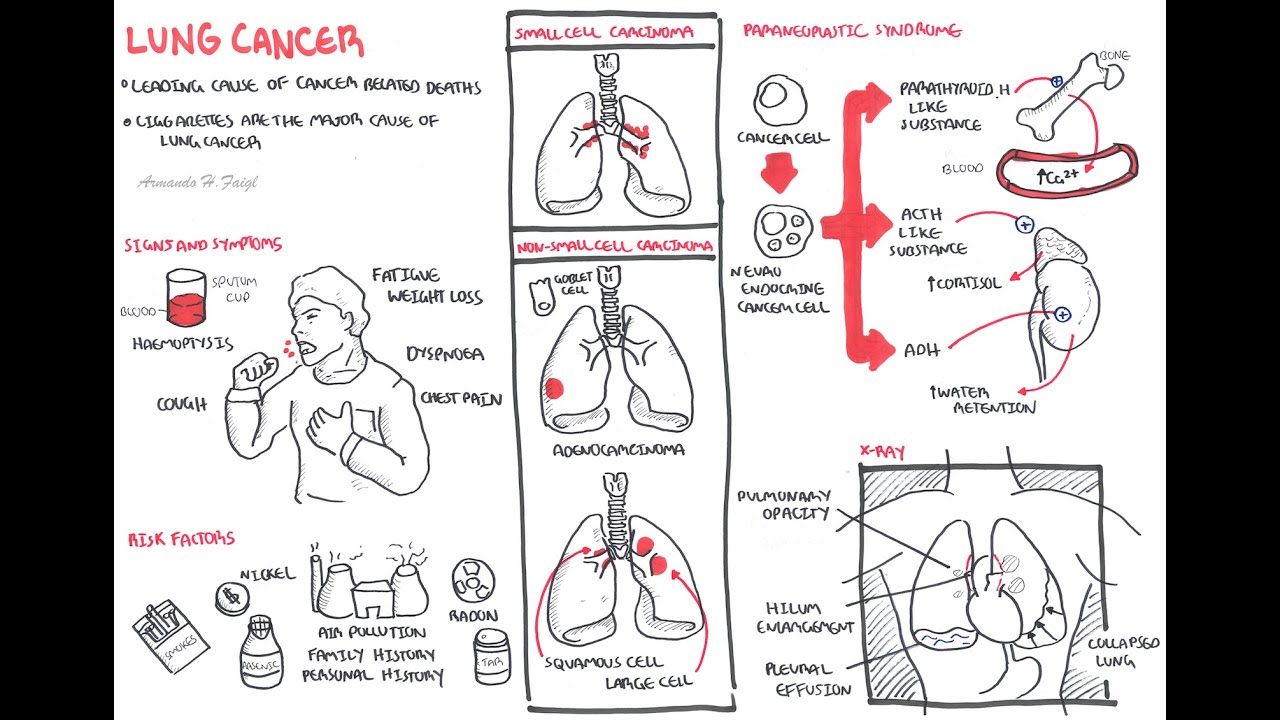 LUNG CANCER
LEADING CAUSE OF CANCER RELATED DEATHS
CIGGARETTES ARE THE MAJOR CAUSE OF
LUNG CANCER
Armando H. Faigl
SIGNS AND SYMPTOMS
SPUTUM
CUP
BLOOD
HAEMOPTYSIS
COUGH
FATIGUE
WEIGHT LOSS
DYSPNOEA
CHEST PAIN
RISK FACTORS
NICKEL
SMOKES
ARSENIC
AIR POLLUTION
FAMILY HISTORY
PERSONAL HISTORY
RADON
TAR
SMALL CELL CARCINOMA
NON-SMALL CELL CARCINOMA
GOBLET
CELL
ADENOCARCINOMA
SQUAMOUS CELL
LARGE CELL
PARANEOPLASTIC SYNDROME
CANCER CELL
NEURO
ENDOCRINE
CANCER CELL
PARATHYROID.H
LIKE
SUBSTANCE
BONE
BLOOD
↑Ca2+
ACTH
LIKE
SUBSTANCE
↑CORTISOL
ADH
↑WATER
RETENTION
X-RAY
PULMONARY
OPACITY
HILUM
ENLARGEMENT
PLEURAL
EFFUSION
COLLAPSED
LUNG